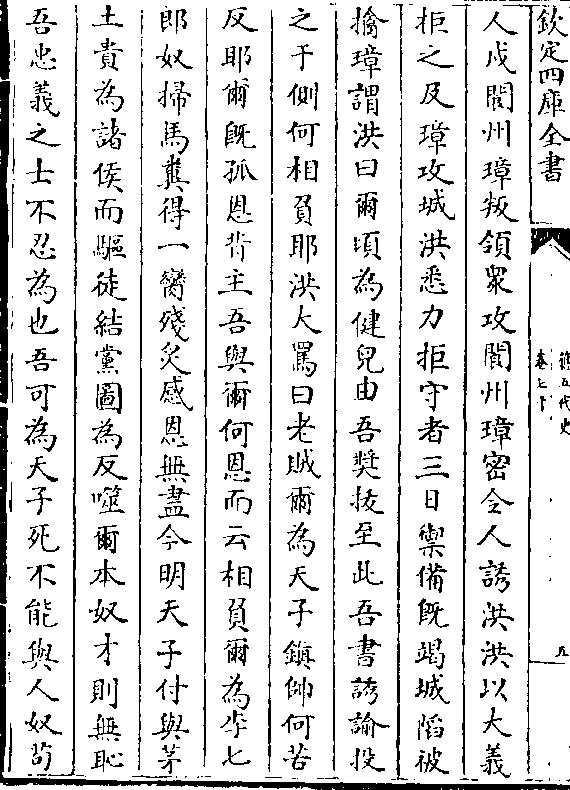 欽定四庫全書
舊五代史
卷七十
五
人戍閬州璋叛領眾攻閬州璋密令人誘洪洪以大義
拒之及璋攻城洪悉力拒守者三日禦備既竭城陷被
擒璋謂洪曰爾頃為健兒由吾奬拔至此吾書誘諭投
之于側何相負耶洪大罵曰老賊爾為天子鎮帥何苦
反耶爾既孤恩背主吾與爾何恩而云相負爾為李七
郎奴掃馬糞得一臠殘炙感恩無盡今明天子付與茅
土貴為諸侯而驅徒結黨圖為反噬爾本奴才則無恥
吾忠義之士不忍為也吾可為天子死不能與人奴苟